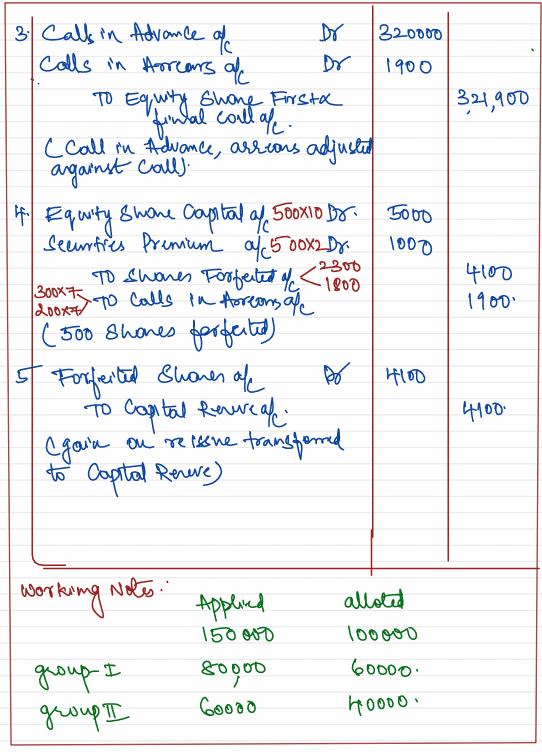 3. Calls in Advance a/c Dr 320000
Calls in Arrears a/c Dr 1900
To Equity Share First &
final call a/c. 321,900
(Call in Advance, arrears adjusted
against Call).
4. Equity Share Capital a/c 500x10 Dr. 5000
Securities Premium a/c 500x2 Dr. 1000
To Shares Forfeited a/c < 2300 4100
1800
300x7
200x7 To Calls in Arrears a/c 1900.
(500 Shares forfeited)
5 Forfeited Shares a/c Dr 4100
To Capital Reserve a/c. 4100.
(gain on reissue transferred
to Capital Reserve)
Working Notes:
Applied alloted
150000 100000
group-I 80,000 60000.
group II 60000 40000.